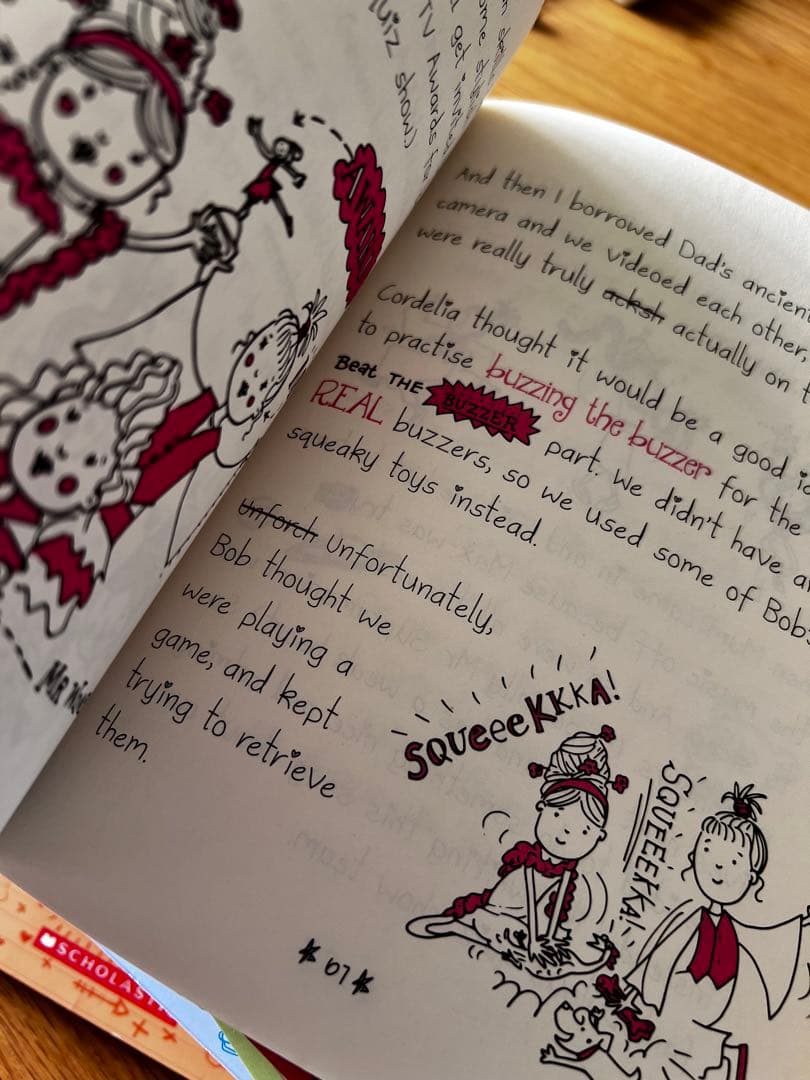 TV Awards for
quiz show)
And then I borrowed Dad's ancient
camera and we videoed each other,
were really truly acksh actually on
Cordelia thought it would be a good
to practise buzzing the buzzer for the
Beat THE BUZZER part. We didn't have
REAL buzzers, so we used some of Bob's
squeaky toys instead.
Unforch Unfortunately,
Bob thought we
were playing a
game, and kept
trying to retrieve
them.
SQUeeeKKKA!
SQUEEEKKA!
67
SCHOLASTIC